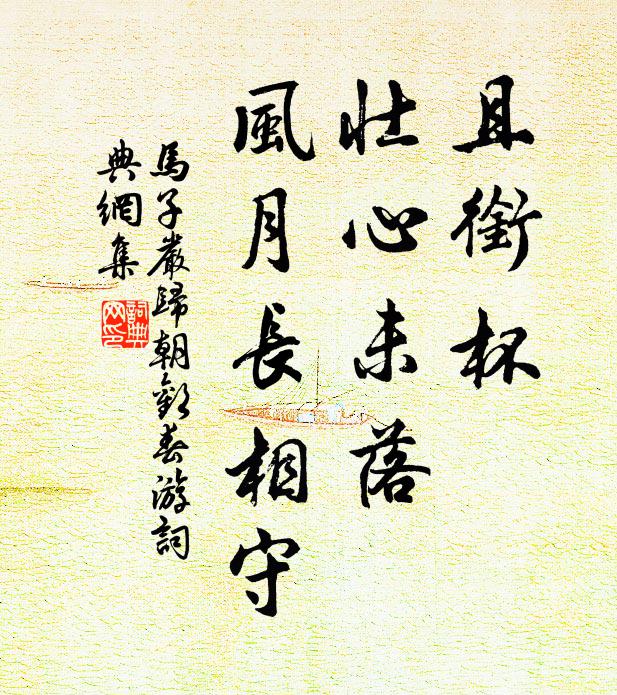 且銜杯
壯心未落
風月長相守
馬子嚴歸朝歡春游詞
典網集
詞典
网印